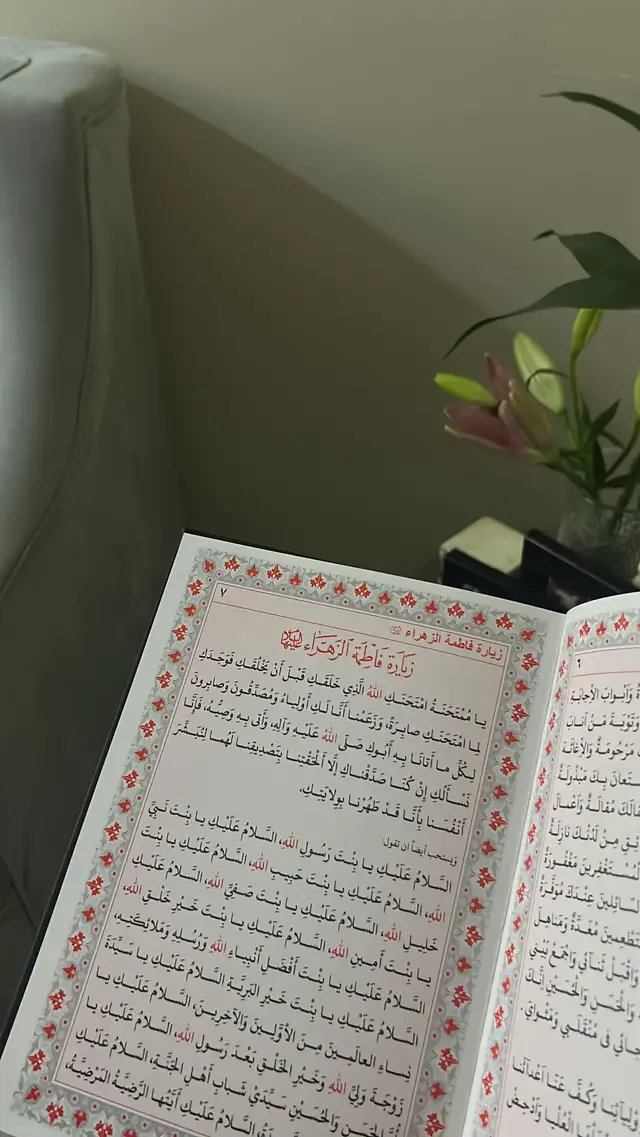 زيارة فاطمة الزهراء
٧
زِيَارَة فَاطِمَة الزَهرَاء
يا مُمْتَحَنَةُ امْتَحَنَكِ اللهُ الَّذِي خَلَقَكِ قَبْلَ أَنْ يَخْلُقَكِ فَوَجَدَكِ
لِمَا امْتَحَنَكِ صابِرَةً، وَزَعَمْنا أَنَّا لَكِ أَوْلِياءُ وَمُصَدِّقُونَ وَصابِرونَ
لِكُلِّ ما أَتانَا بِهِ أَبُوكِ صَلَّى اللهُ عَلَيْهِ وَآلِهِ، وَأَتى بِهِ وَصِيُّهُ، فَإِنَّا
نَسْأَلُكِ إِنْ كُنَّا صَدَّقْناكِ إِلَّا أَلْحَقْتِنا بِتَصْدِيقِنا لَهُما لِنُبَشِّرَ
أَنْفُسَنا بِأَنَّا قَدْ طَهُرْنا بِوِلايَتِكِ.
ويستحب أيضاً ان تقول:
السَّلامُ عَلَيْكِ يا بِنْتَ رَسُولِ اللهِ، السَّلامُ عَلَيْكِ يا بِنْتَ نَبِيِّ
اللهِ، السَّلامُ عَلَيْكِ يا بِنْتَ حَبِيبِ اللهِ، السَّلامُ عَلَيْكِ يا بِنْتَ
خَلِيلِ اللهِ، السَّلامُ عَلَيْكِ يا بِنْتَ صَفِيِّ اللهِ، السَّلامُ عَلَيْكِ
يا بِنْتَ أَمِينِ اللهِ، السَّلامُ عَلَيْكِ يا بِنْتَ خَيْرِ خَلْقِ اللهِ،
السَّلامُ عَلَيْكِ يا بِنْتَ أَفْضَلِ أَنْبِياءِ اللهِ وَرُسُلِهِ وَمَلائِكَتِهِ،
السَّلامُ عَلَيْكِ يا بِنْتَ خَيْرِ البَرِيَّةِ السَّلامُ عَلَيْكِ يا سَيِّدَةَ
نِساءِ العالَمِينَ مِنَ الأَوَّلِينَ وَالآخِرِينَ، السَّلامُ عَلَيْكِ يا
زَوْجَةَ وَلِيِّ اللهِ وَخَيْرِ الخَلْقِ بَعْدَ رَسُولِ اللهِ، السَّلامُ عَلَيْكِ يا
الحَسَنِ وَالحُسَيْنِ سَيِّدَيْ شَبابِ أَهْلِ الجَنَّةِ، السَّلامُ عَلَيْكِ
السَّلامُ عَلَيْكِ أَيَّتُها الرَّضِيَّةُ المَرْضِيَّةُ،
٦
وَأَبْوابَ الأجابَةِ
وَتَوْبَةَ مَنْ أَنابَ
مَرْحُومَةٌ وَالأِغاثَةَ
بِكَ مَبْذُولَةٌ
مُقالَةٌ وَأَعْمالَ
مِنْ لَدُنْكَ نازِلَةٌ
المُسْتَغْفِرِينَ مَغْفُورَةٌ
عِنْدَكَ مُوَفَّرَةٌ
مُعَدَّةٌ وَمَناهِلَ
وَاقْبَلْ ثَنائِي وَاجْمَعْ بَيْنِي
وَالحَسَنِ وَالحُسَيْنِ إِنَّكَ
فِي مُنْقَلَبِي وَمَثْوايَ.
وَكُفَّ عَنَّا أَعْدائَنا
العُلْيا وَادْحِضْ